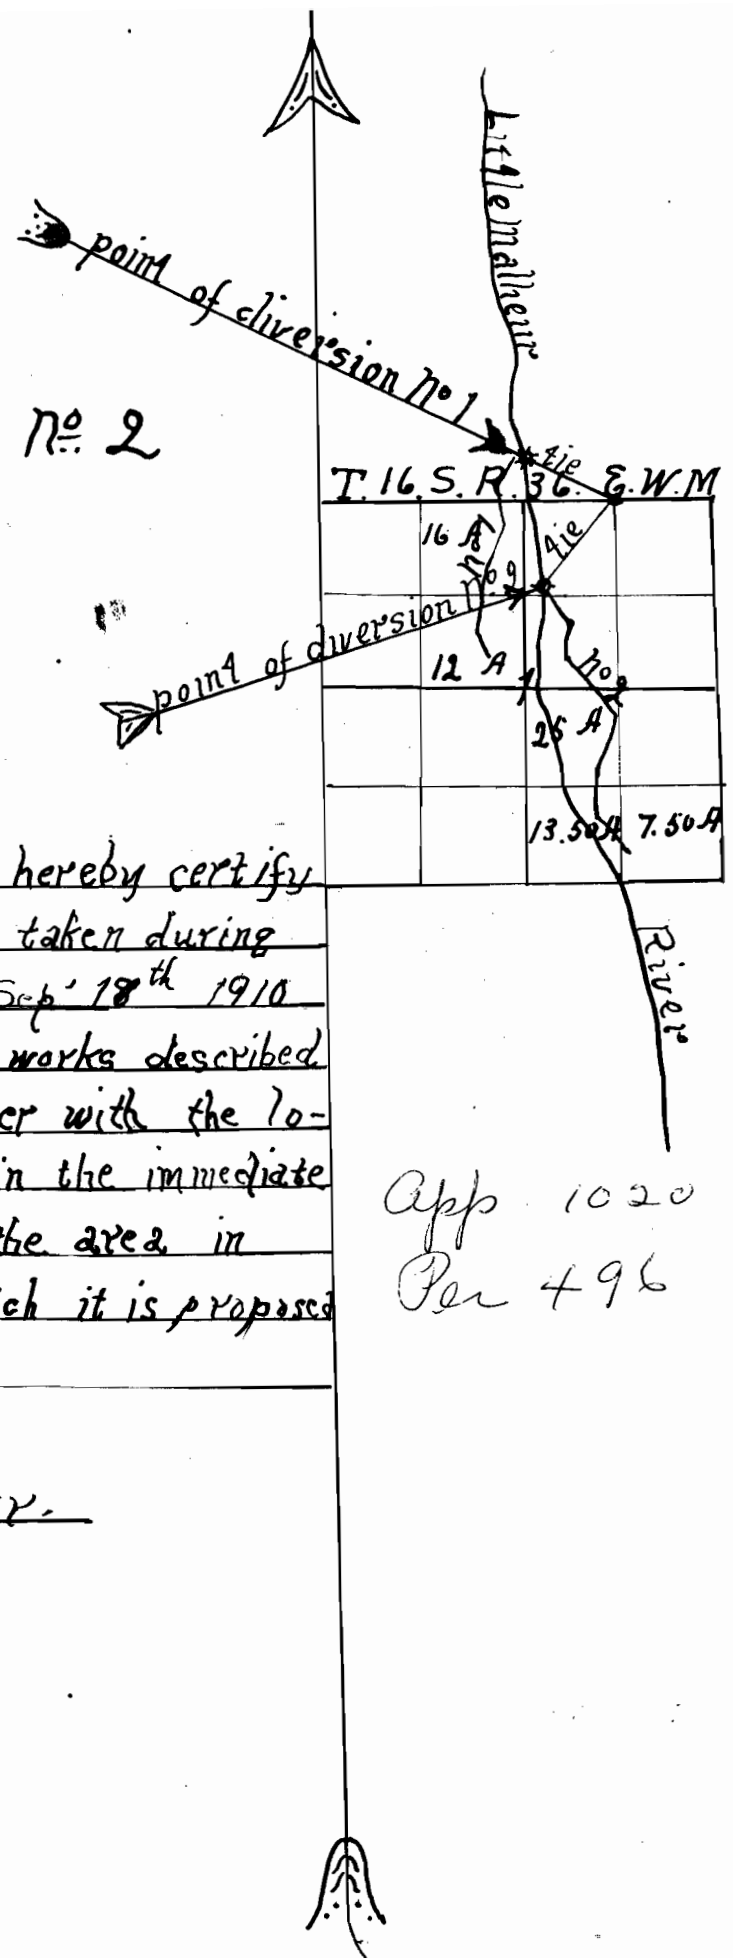 Little Malheur
point of diversion No 1
No 2
tie
T. 16. S. R. 36. E. W. M
16 A
No 1
tie
point of diversion No. 2
12 A
1
No 2
25 A
13.50 A 7.50 A
hereby certify
taken during
Sep' 18th 1910
works described
er with the lo-
in the immediate
the area in
ch it is proposed
r.
River
App 1020
Per 496